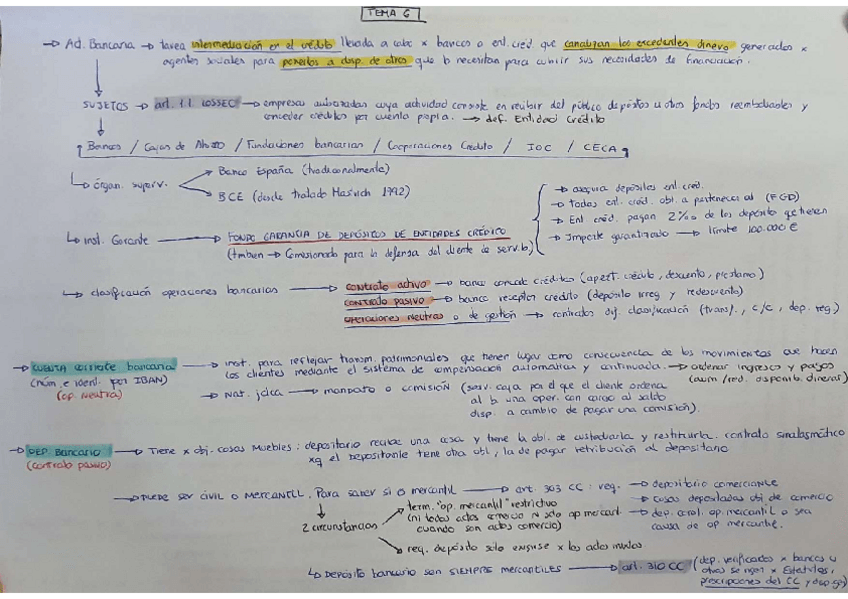 TEMA 6
→ Ad. Bancaria → tarea intermediación en el crédito llevada a cabo x bancos o ent. créd. que canalizan los excedentes dinero generados x
agentes sociales para ponerlos a disp. de otros que lo necesitan para cubrir sus necesidades de financiación.
SUJETOS → art. 1.1 LOSSEC → empresas autorizadas cuya actividad consiste en recibir del público depósitos u otros fondos reembolsables y
conceder créditos por cuenta propia. → def. Entidad Crédito
Bancos / Cajas de Ahorro / Fundaciones bancarias / Cooperaciones Crédito / ICO / CECA
↳ órgan. superv. → Banco España (tradicionalmente)
→ BCE (desde tratado Mastrich 1992)
→ asegura depósitos ent. créd.
→ todas ent. créd. obl. a pertenecer al (FGD)
→ Ent créd. pagan 2‰ de los depósito que tienen
→ Importe garantizado → límite 100.000 €
↳ inst. Garante → FONDO GARANTIA DE DEPÓSITOS DE ENTIDADES CRÉDITO
(tmbien → Comisionado para la defensa del cliente de serv. b.)
↳ clasificación operaciones bancarias → contrato activo → banco concede créditos (apert. crédito, descuento, préstamo)
contrato pasivo → banco receptor crédito (depósito irreg y redescuento)
operaciones neutras o de gestión → contratos dif. clasificación (transf., c/c, dep. reg.)
→ CUENTA corriente bancaria → inst. para reflejar transm. patrimoniales que tienen lugar como consecuencia de los movimientos que hacen
(núm. e ident. por IBAN) los clientes mediante el sistema de compensación automática y continuada. → ordenar ingresos y pagos
(op. neutra) (aum/red. disponib. dinerar)
→ Nat. jdca → mandato o comisión (serv. caja por el que el cliente ordena
al b una oper. con cargo al saldo
disp. a cambio de pagar una comisión).
→ DEP. Bancario → Tiene x obj. cosas muebles: depositario recibe una cosa y tiene la obl. de custodiarla y restituirla. contrato sinalagmático
(contrato pasivo) xq el depositante tiene otra obl, la de pagar retribución al depositario
→ PUEDE SER CIVIL O MERCANTIL. Para saber si es mercantil → art. 303 CC: req. → depositario comerciante
→ cosas depositadas obj. de comercio
→ dep. const. op. mercantil o sea
causa de op mercantil.
2 circunstancias → term. "op. mercantil" restrictivo
(ni todos actos comercio ni solo op mercant.
cuando son actos comercio)
→ req. depósito sólo exigirse x los
↳ Depósito bancario son SIEMPRE mercantiles → art. 310 CC (dep. verificados x bancos u
otras se rigen x Estatutos,
prescripciones del CC y